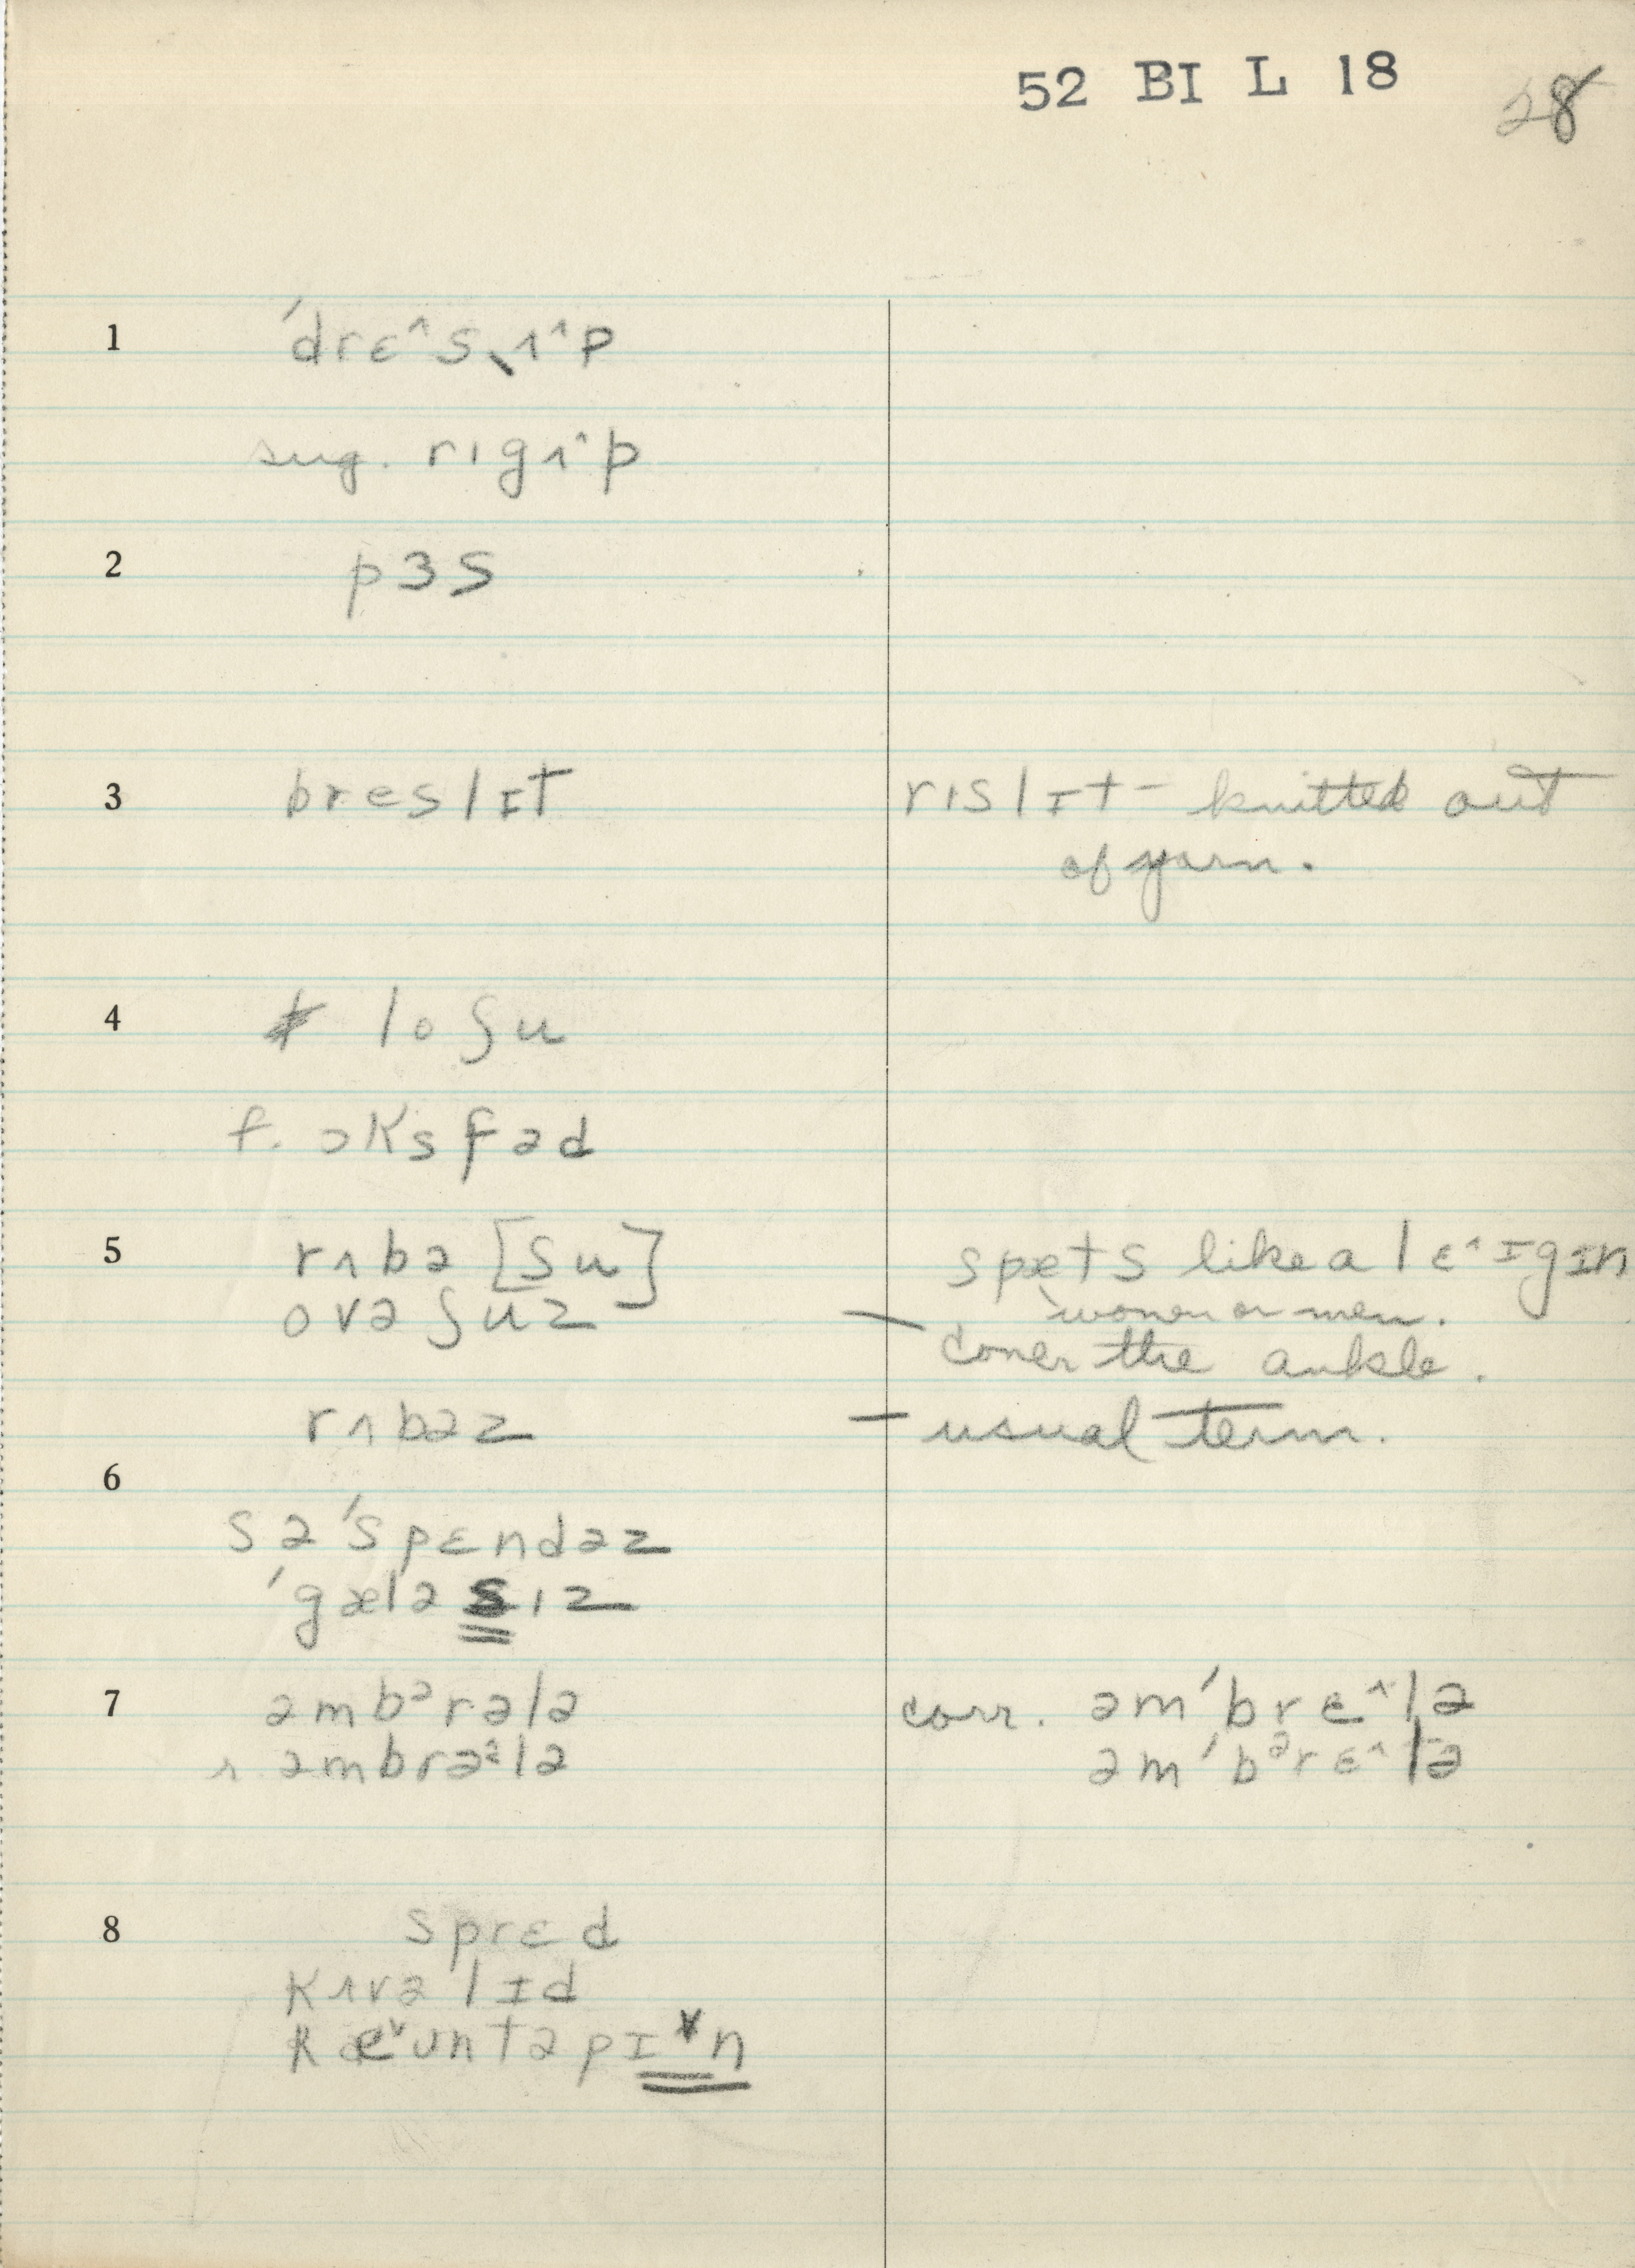 52 BI L 18
28
1 ˈdrɛ^sˌʌ^p
sug. rigʌ^p
2 pɜs
3 breslɪt
rislɪt - knitted out
of yarn.
4 lo ʃu
f. ɔksfəd
5 rʌbə [ʃu]
spæts like a lɛ^ɪgɪn
women or men.
ovə ʃuz —
cover the ankle.
rʌbəz — usual term.
6
səˈspɛndəz
ˈgæləsiz
7 əmbᵊrələ
corr. əmˈbrɛ^lə
r. əmbrəᵋlə
əmˈbᵊrɛ^lə
8 sprɛd
kʌvəlɪd
kæ˅ʊntəpɪ˅n